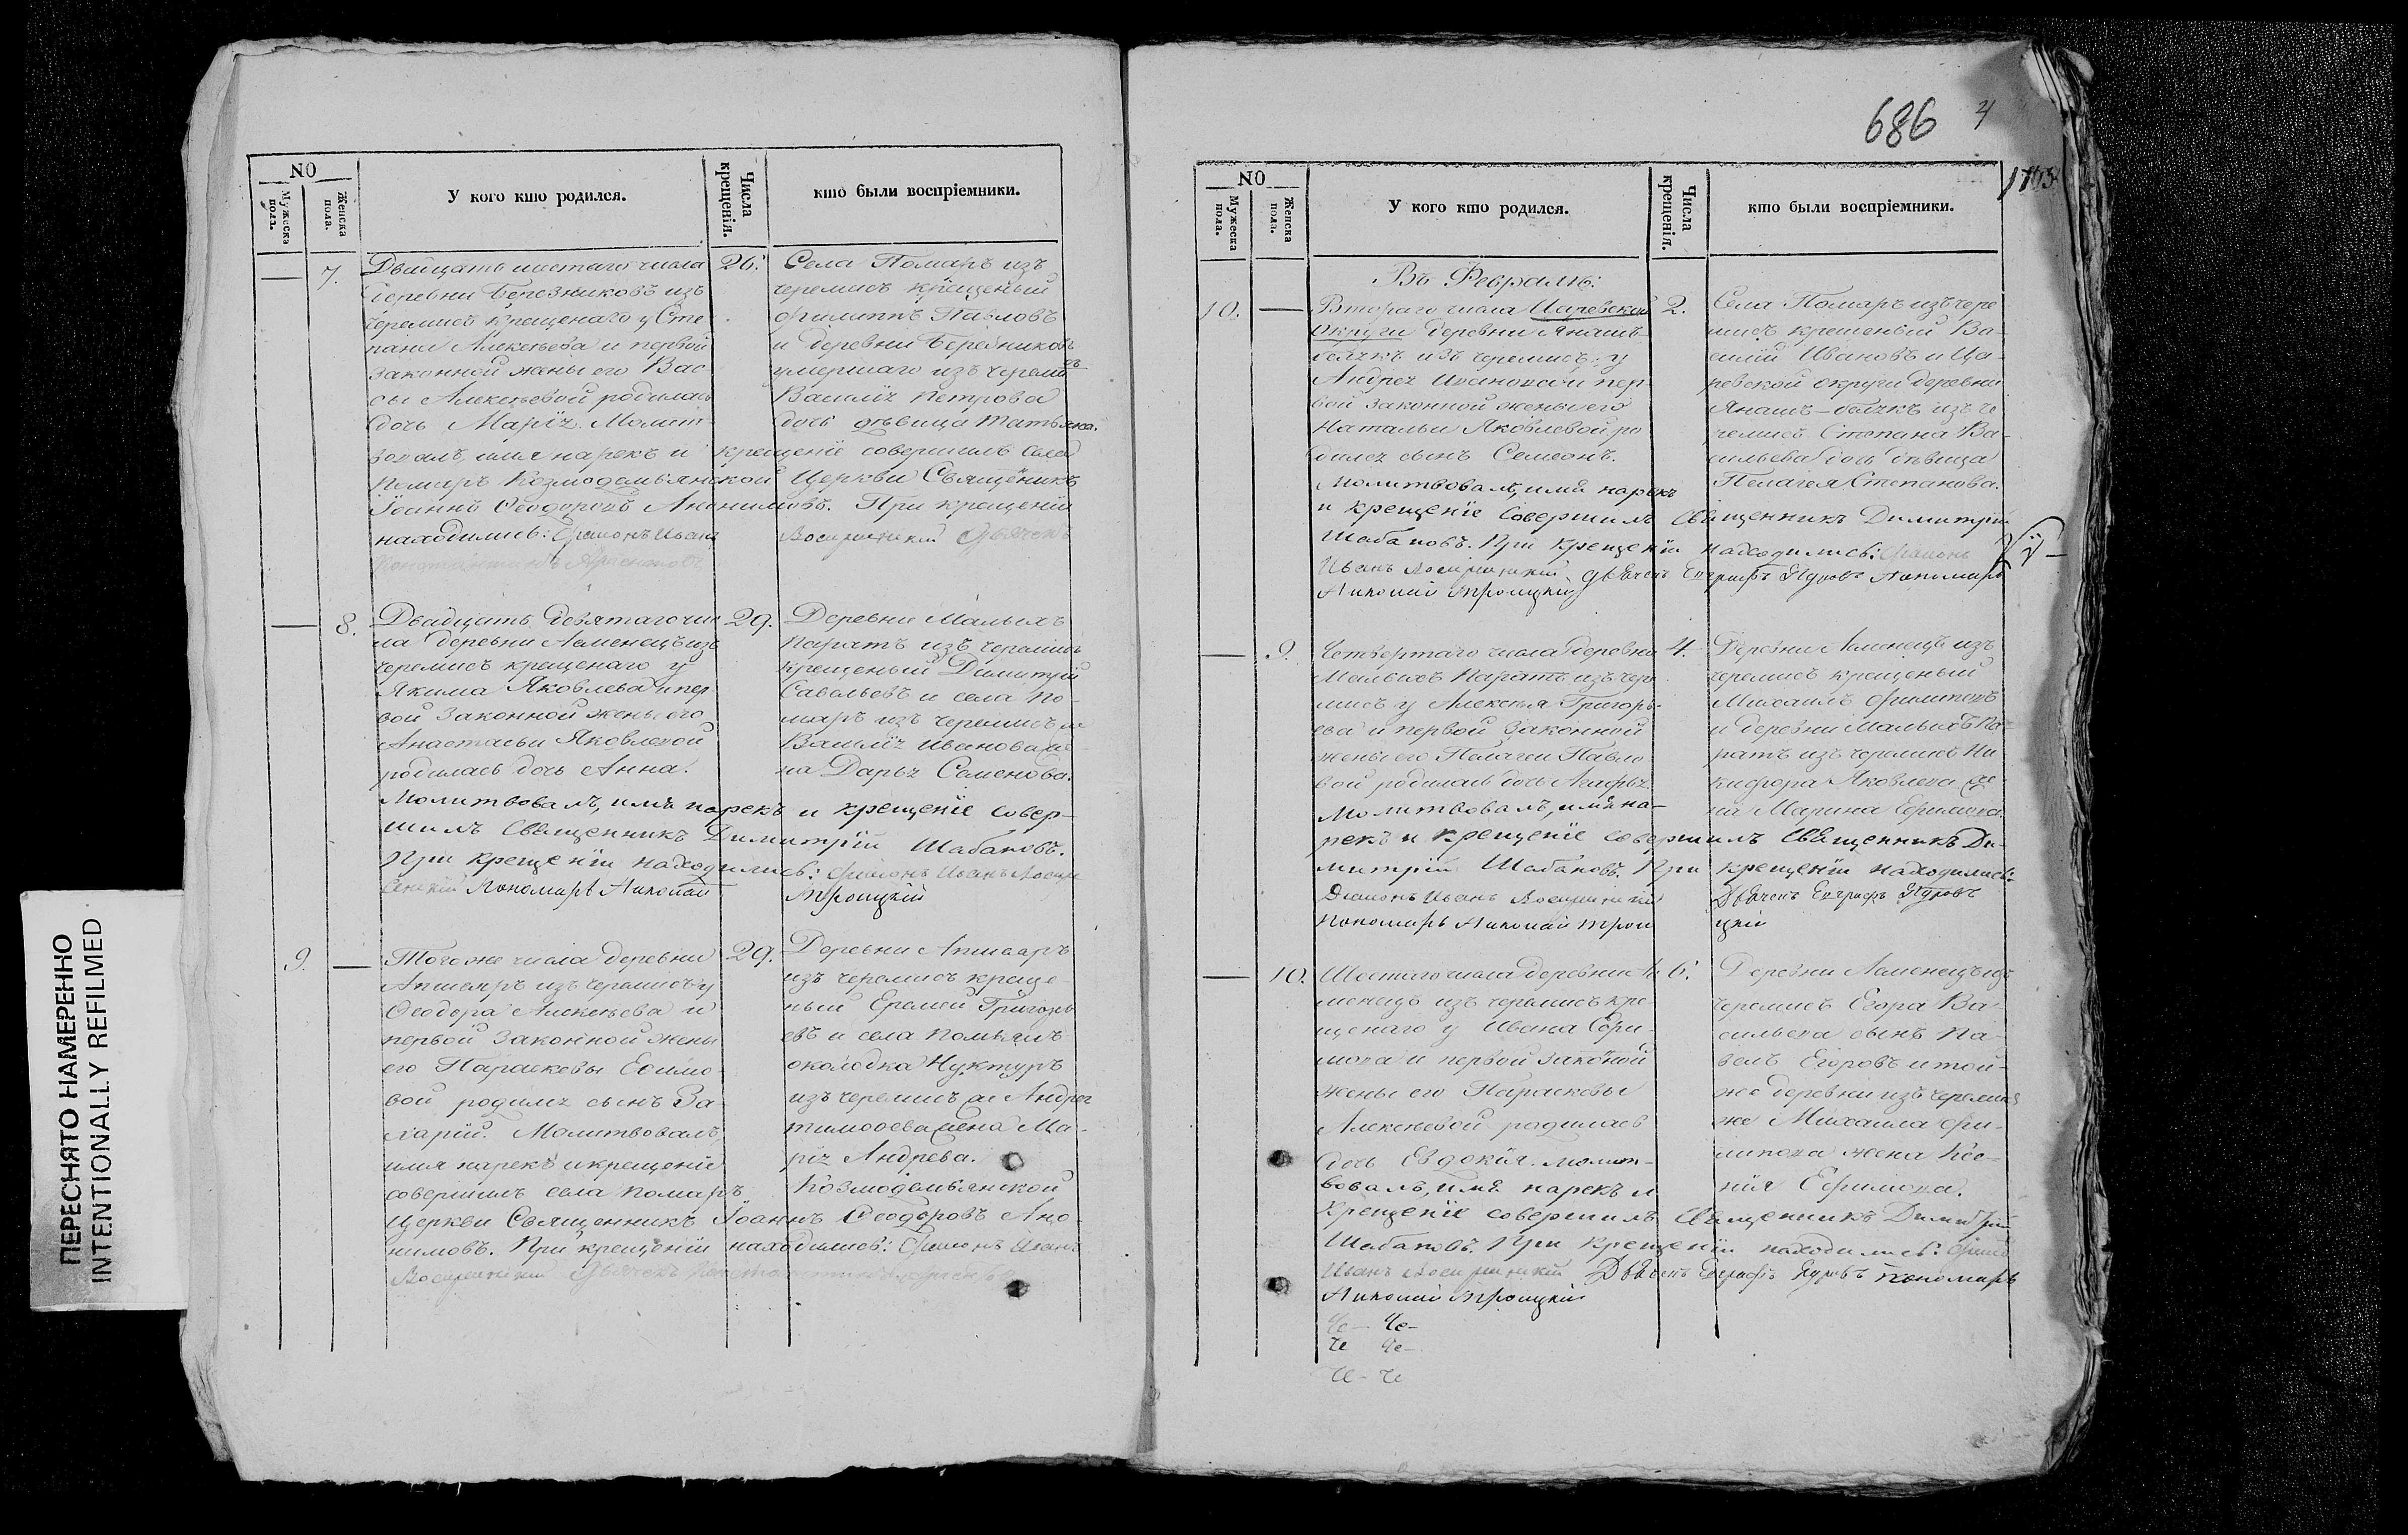 NO
Мужеска пола.
Женска пола.
У кого кто родился.
Числа крещенія.
кто были воспріемники.
— 7.
Двадцать шестаго числа
деревни Березниковъ изъ
черемисъ крещенаго у Сте
пана Алексѣева и первой
законной жены его Вас
сы Алексѣевой родилась
дочь Марія. Молит
вовалъ, имя нарекъ и крещеніе совершилъ села
Помаръ Козмодамьянской Церкви Священникъ
Іоаннъ Ѳеодоровъ Анонимовъ. При крещеніи
находились: Діаконъ Иванъ
Константинъ
26.
Села Помаръ изъ
черемисъ крещеный
Филиппъ Павловъ
и деревни Березниковъ
умершаго изъ черемисъ
Василія Петрова
дочь дѣвица Татьяна.
Воскресенскій Дьячекъ
— 8.
Двадцать девятаго чис
ла деревни Аменецъ изъ
черемисъ крещенаго у
Якима Яковлева и пер
вой законной жены его
Анастасьи Яковлевой
родилась дочь Анна.
Молитвовалъ, имя нарекъ и крещеніе совер-
шилъ Священникъ Димитрій Шабановъ.
При крещеніи находились: Діаконъ Иванъ Воскре
сенскій Пономарь Николай Троицкій
29.
Деревни Малыхъ
Паратъ изъ черемисъ
крещеный Димитрій
Савельевъ и села По-
маръ изъ черемисъ
Василія Иванова же
на Дарья Семенова.
9. —
Того же числа деревни
Апшакъ изъ черемисъ у
Ѳеодора Алексѣева и
первой законной жены
его Параскевы Ефимо
вой родился сынъ За-
харій. Молитвовалъ,
имя нарекъ и крещеніе
совершилъ села Помаръ Козмодамьянской
Церкви Священникъ Іоаннъ Ѳеодоровъ Ано
нимовъ. При крещеніи находились: Діаконъ Иванъ
Воскресенскій Дьячекъ
29.
Деревни
изъ черемисъ креще-
ный Еремей Григорь
евъ и села Помьялъ
околодка Нуктуръ
изъ черемисъ же Андрея
Тимофеева жена Ма-
рія Андрева.
686
4
NO
Мужеска пола.
Женска пола.
У кого кто родился.
Числа крещенія.
кто были воспріемники.
Въ Февралѣ:
10. —
Втораго числа Царевской
Округи деревни Янашъ-
белякъ изъ черемисъ у
Андрея Иванова и пер-
вой законной жены его
Натальи Яковлевой ро
дился сынъ Семеонъ.
Молитвовалъ, имя нарекъ
и крещеніе совершилъ Священникъ Димитрій
Шабановъ. При крещеніи находились: Діаконъ
Иванъ Воскресенскій, Дьячекъ Евграфъ Пономарь
Николай Троицкій
2.
Села Помаръ изъ чере
мисъ крещеный Ва-
силій Ивановъ и Ца-
ревской округи деревни
Янашъ-белякъ изъ че
ремисъ Степана Ва-
сильева дочь дѣвица
Пелагея Степанова.
— 9.
Четвертаго числа деревни
Малыхъ Паратъ изъ чере
мисъ у Алексѣя Григорь-
ева и первой законной
жены его Пелагеи Павло
вой родилась дочь Агафья.
Молитвовалъ, имя на-
рекъ и крещеніе совершилъ Священникъ Ди-
митрій Шабановъ. При крещеніи находились:
Діаконъ Иванъ Воскресенскій Дьячекъ Евграфъ
Пономарь Николай Трои цкій
4.
Деревни Аменецъ изъ
черемисъ крещеный
Михаилъ Филиповъ
и деревни Малыхъ Па-
ратъ изъ черемисъ Ни
кифора Яковлева же
на Марина Ефимова.
— 10.
Шестаго числа деревни А
менецъ изъ черемисъ кре-
щенаго у Ивана Ефи-
мова и первой законной
жены его Парасковьи
Алексѣевой родилась
дочь Евдокія. Молит-
вовалъ, имя нарекъ и
Крещеніе совершилъ Священникъ Димитрій
Шабановъ. При крещеніи находились:
Иванъ Воскресенскій Дьячекъ Евграфъ Пономарь
Николай Троицкій
6.
Деревни Аменецъ изъ
черемисъ Егора Ва-
сильева сынъ Па-
велъ Егоровъ и той-
же деревни изъ черемисъ
же Михаила Фи-
липова жена Ксе-
нія Ефимова.
Че- Че-
Че Че-
Че- Че
ПЕРЕСНЯТО НАМЕРЕННО
INTENTIONALLY REFILMED